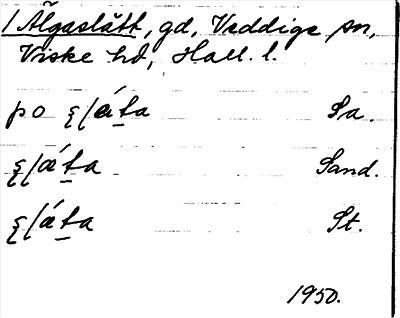 1 Älgaslätt, gd, Veddige sn,
Viske hd, Hall. l.
po ȿlǽt̠a Sa.
ȿlǽt̠a Sand.
ȿlát̠a St.
1950.